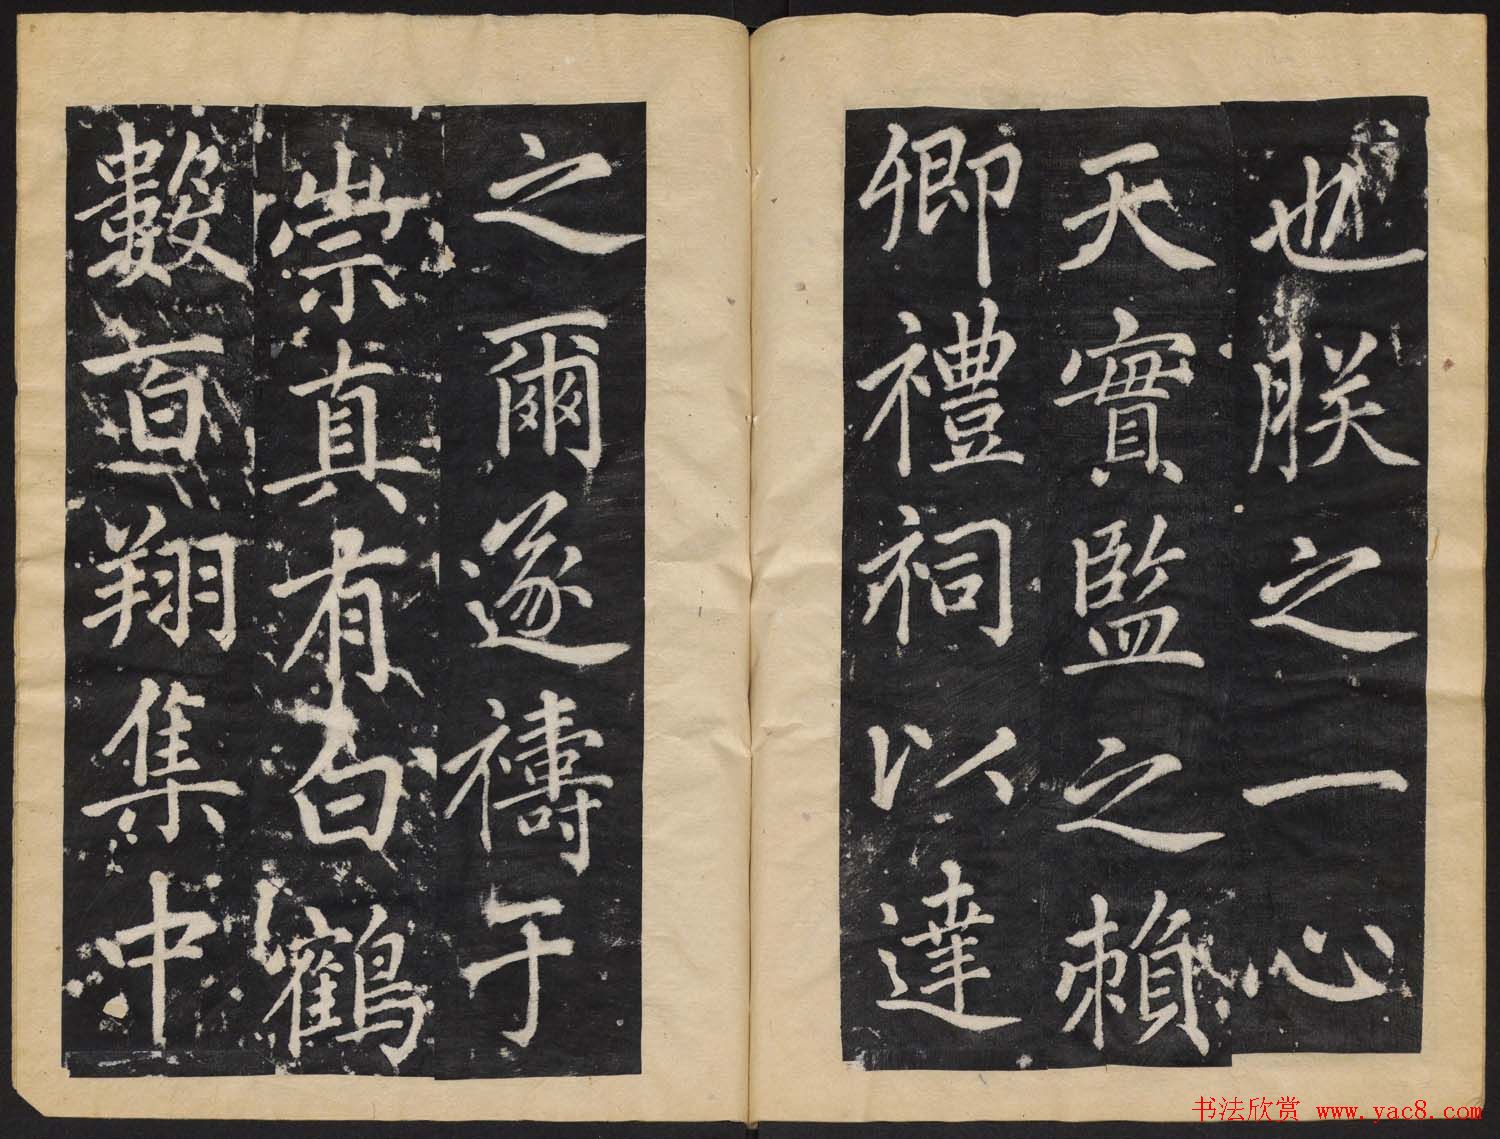 也朕之一心
天實監之賴
卿禮祠以達
之爾遂禱于
崇真有白鶴
數百翔集中
书法欣赏 www.yac8.com